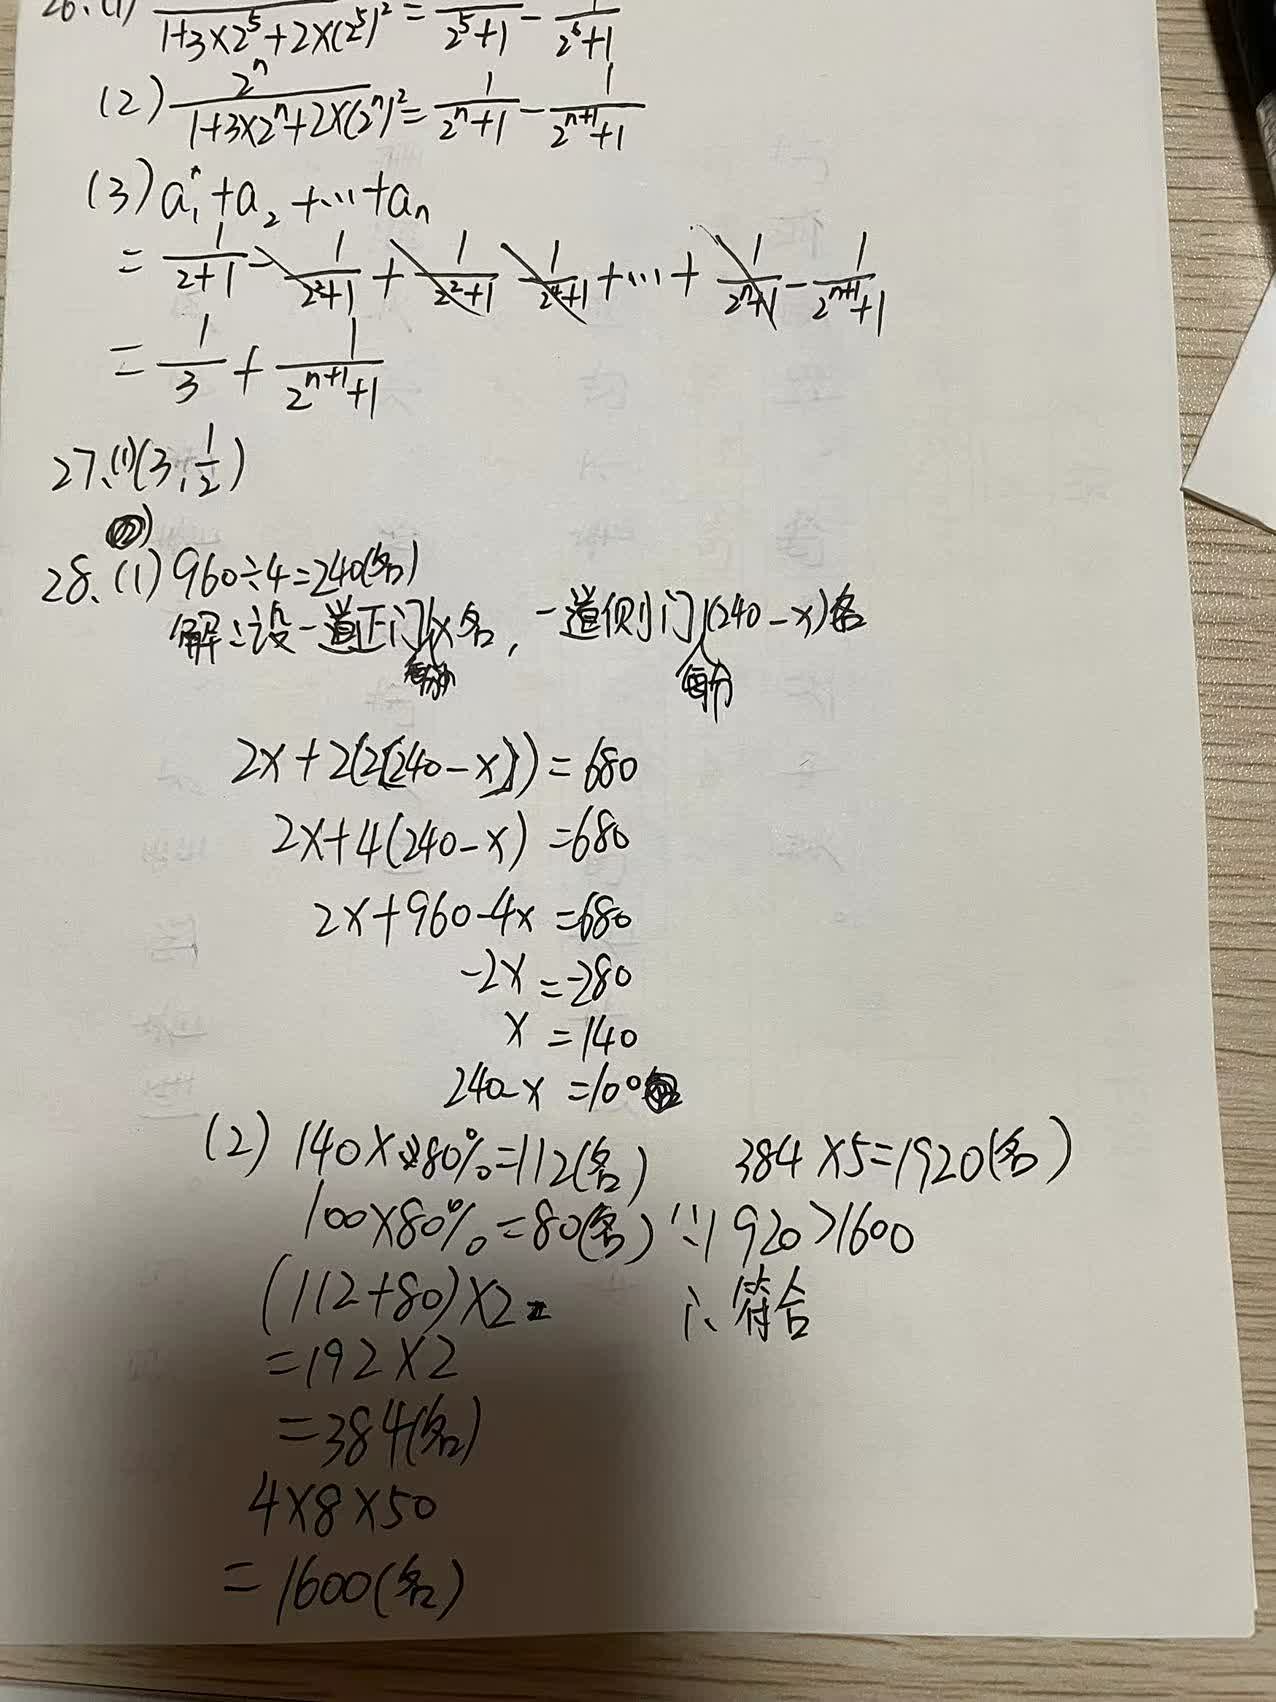 26、(1) 1+3×2⁵+2×(2⁵)² = 1/(2⁵+1) - 1/(2⁶+1)
(2) 2ⁿ/(1+3×2ⁿ+2×(2ⁿ)²) = 1/(2ⁿ+1) - 1/(2ⁿ⁺¹+1)
(3) a₁+a₂+…+aₙ
= 1/(2+1) - 1/(2²+1) + 1/(2²+1) 1/(2⁴+1) +…+ 1/(2ⁿ+1) - 1/(2ⁿ⁺¹+1)
= 1/3 + 1/(2ⁿ⁺¹+1)
27、(1)(3,1/2)
28、(1) 960÷4=240(名)
解:设一道正门x名,一道侧门(240-x)名
每分
2x+2(2[240-x])=680
2x+4(240-x)=680
2x+960-4x=680
-2x=-280
x=140
240-x=100
(2) 140×80%=112(名)
100×80%=80(名)
(112+80)×2
=192×2
=384(名)
4×8×50
=1600(名)
384×5=1920(名)
∵1920>1600
∴符合